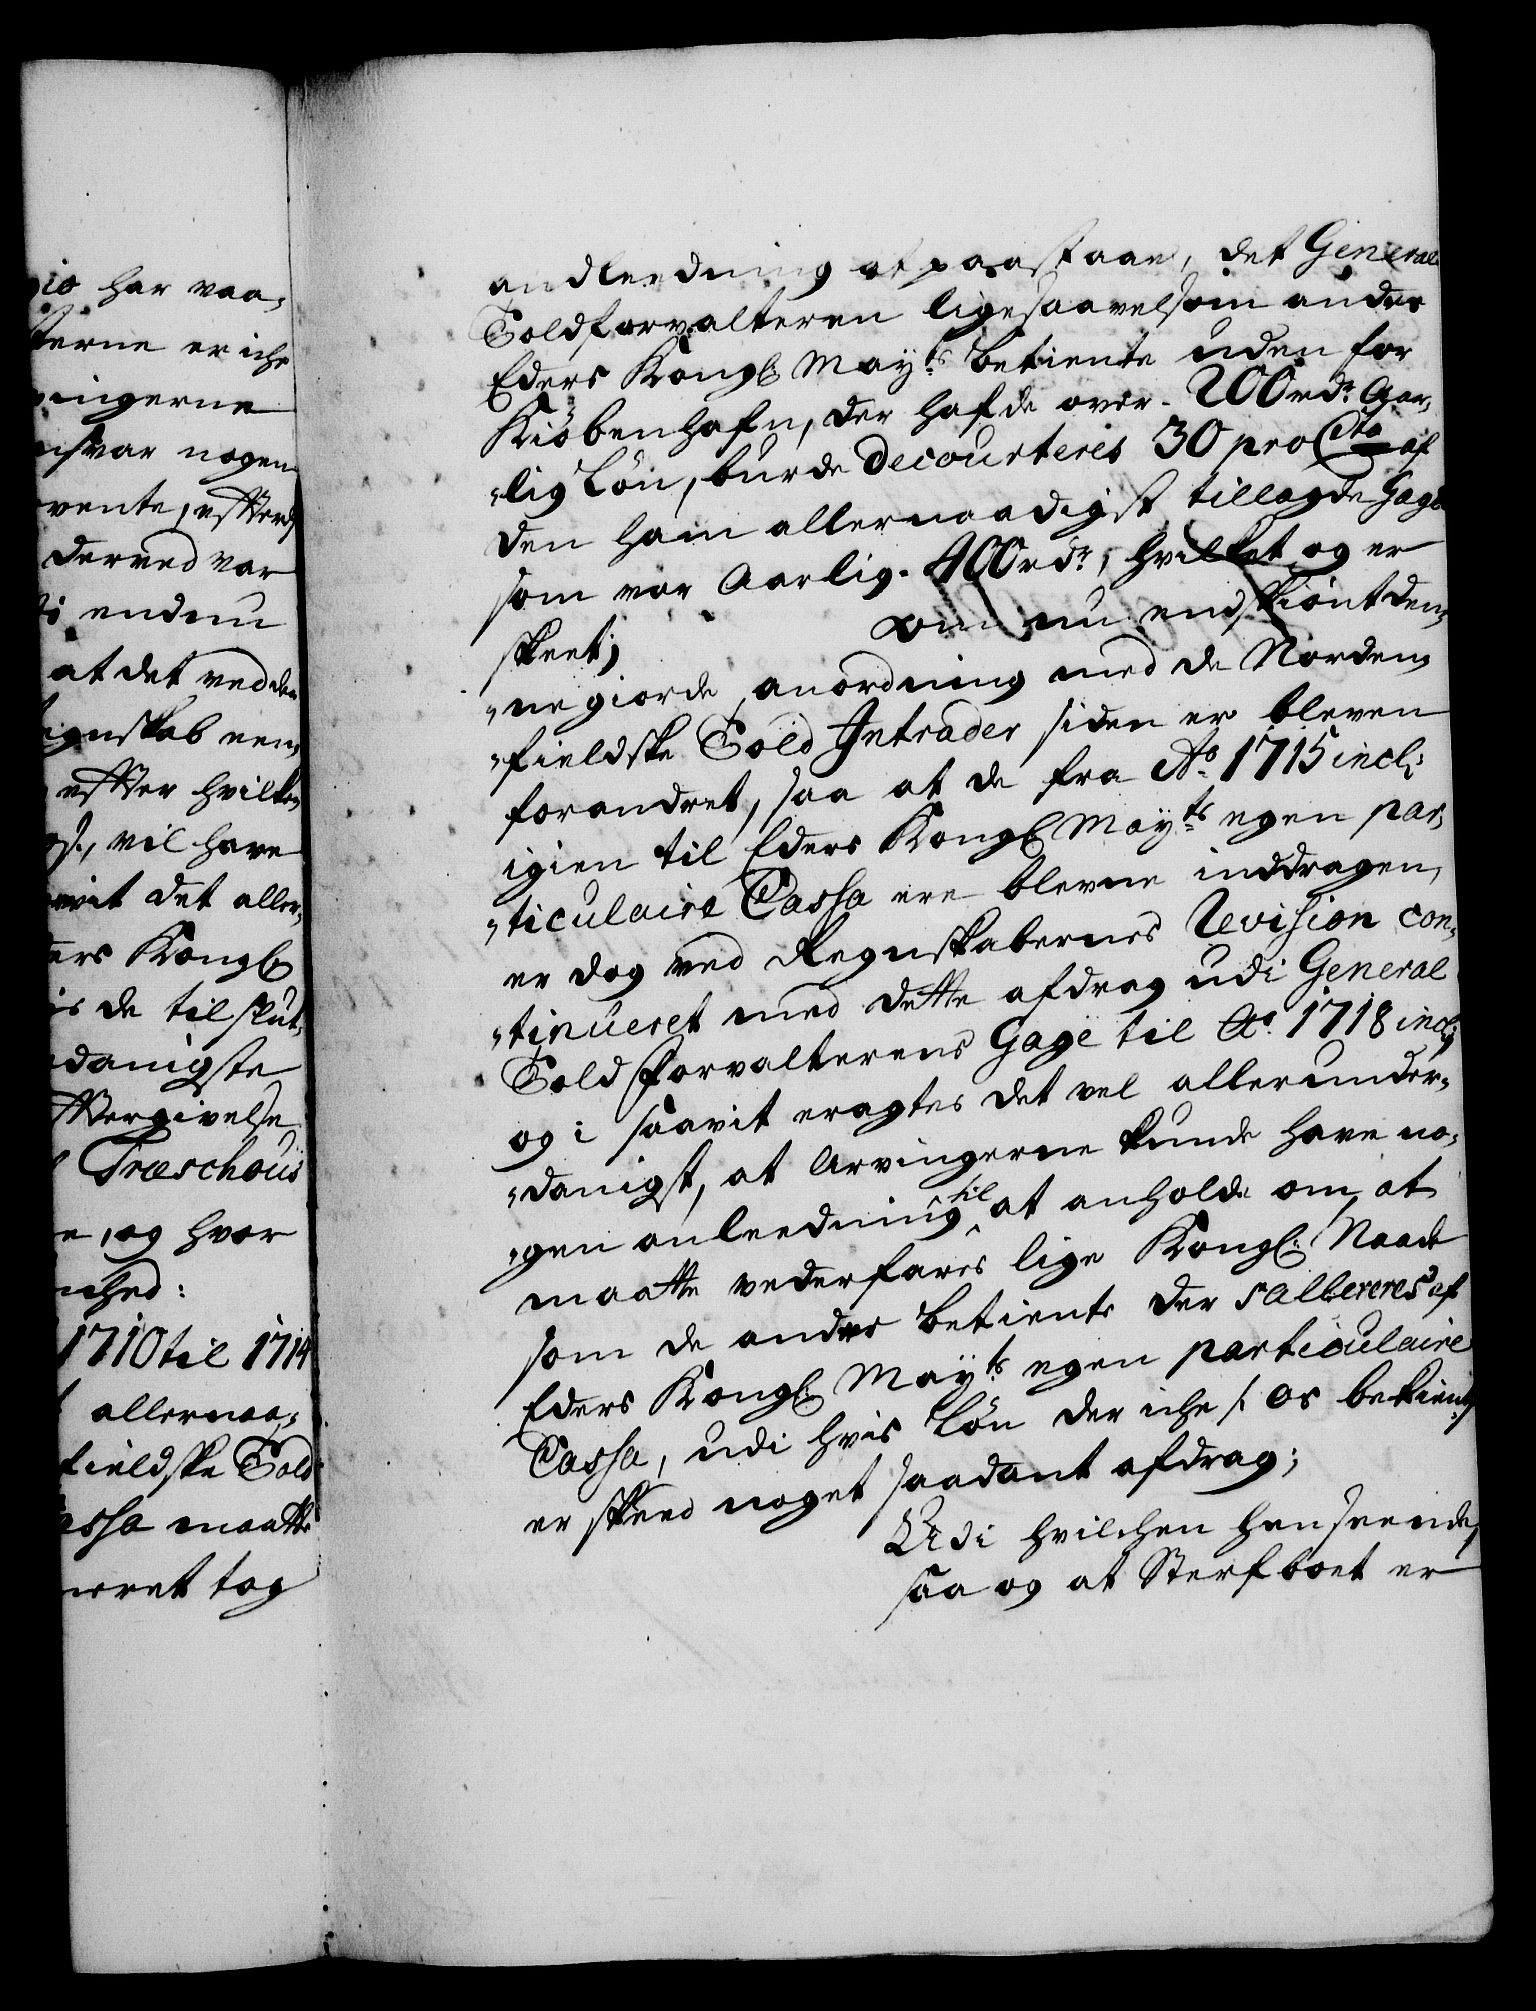 gio har vaa-
terne er iche
vingerne
nsvar nogen
vente, efterdj
derved var
endnu
at det ved den
ignskab nem,
efter hvilke,
vil have
vit det aller,
ers Kongl:
is de tilskut,
danigste
tergivelse
Træschous
e, og hvor
nhed:
1710 til 1714
allernaa,
fieldske Told
assa maatte
neret tog
andleedning at paastaae, det General
Toldforvalteren ligesaavelsom andre
Eders Kongl: Mayts betiente uden for
Kiöbenhafn, der hafde over 200 rdr Aar,
"lig Lön, burde decourteris 30 pro Cto af
den ham allernaadigst tillagde Gage
som var Aarlig. 400 rdr, hvilket og er
skeet;
om nu endskiönt den,
"ne giorde anordning med de Norden,
"fieldske Told Intrader siden er bleven
forandret, saa at de fra Ao 1715 incl:
igien til Eders Kongl: Mayts egen par,
"ticulaire Cassa ere blevne inddragen,
er dog ved Regnskabernes Revision con,
"tinueret med dette afdrag udi General
Told Forvalterens Gage til Ao 1718 incl:
og i saavit eragtes det vel allerunder,
"danigst, at Arvingerne kunde have no,
"gen anleedning til at anholde om, at
maatte vederfares lige Kongl: Naade
som de andre betiente der sallereres af
Eders Kongl: Mayts egen particulaire
Cassa, udi hvis Lön der iche /: os bekient
er skeed noget saadant afdrag;
Udi hvilchen henseende,
saa og at Sterfboet er